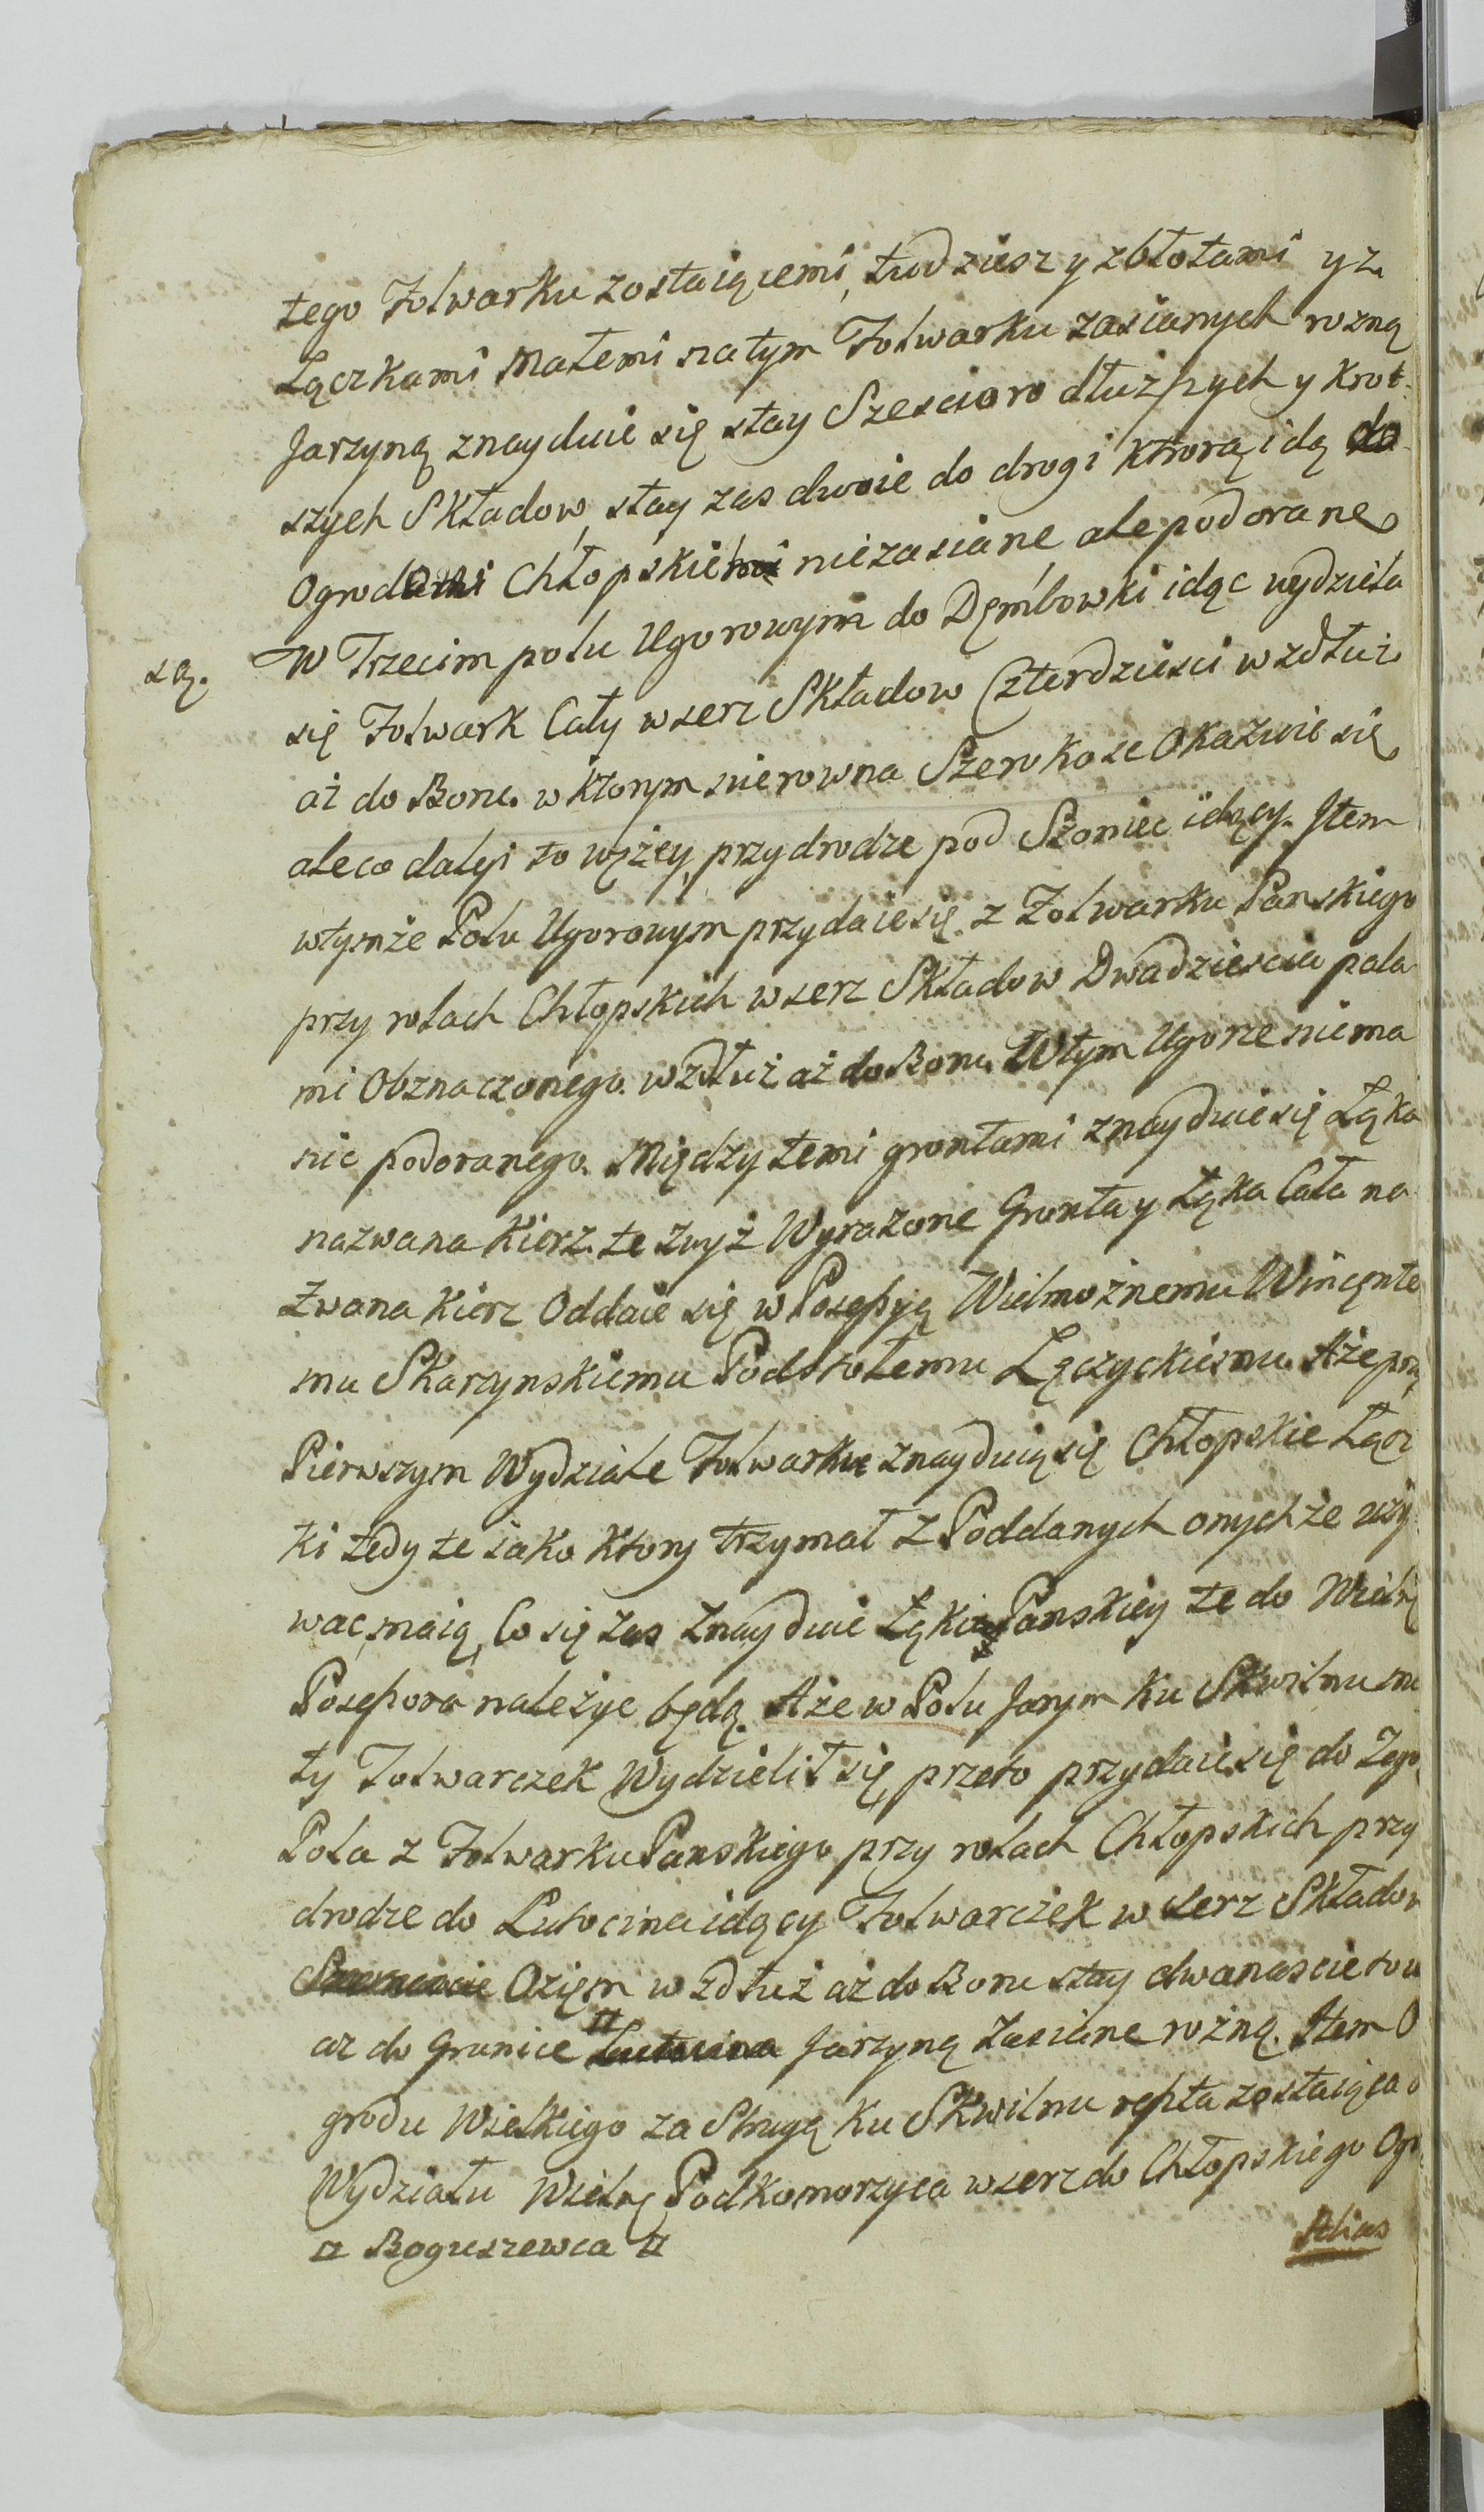 tego Folwarku zostaiącemi, tudziesz y z błotami y z
Łączkami Małemi na tym Folwarku zasianych rozną
Jarzyną znayduie się stay Szescioro dłuższych y krot-
szych Składow, stay zas dwoie do drogi ktorą idą do
Ogrod Chłopskie nie zasiane, ale podorane
są. W Trzecim polu Ugorowym do Dęmbowki idąc wydziela
się Folwark Cały wserz Składow Czterdziesci wzdłuż
aż do Boru. w ktorym nierowna Szerokosc Okazuie się
ale co daley to węzey, przy drodze pod Słoniec idący. Item
w tymże Polu Ugorowym przydaie się z Folwarku Panskiego
przy rolach Chłopskich wserz Składow Dwadziescia pala-
mi Obznaczonego. wzdłuż aż do Boru. W tym Ugorze niema
nic podoranego. Między temi grontami znayduie się Łąka
nazwana Kierz. te zwyż Wyrażone Gronta y Łąka Cała na-
zwana Kierz Oddaie się w Possessyą Wielmożnemu Wincęnte-
mu Skarzynskiemu Podstolemu Łęczyckiemu. Aże przy
Pierwszym Wydziale Folwarku znayduią się Chłopskie Łącz
ki tedy te iako ktory trzymał z Poddanych onychże uży-
wac maią, Co się zas znayduie Łąki Panskiey te do Wielgo
Possessora należyc będą. Aże w Polu Jarym ku Skwilnu ma
ły Folwarczek Wydzielił się, przeto przydaie się do Tego
Pola z Folwarku Panskiego przy rolach Chłopskich przy
drodze do Lutocina idący Folwarczek wserz Składow
Ozięm wzdłuż aż do Boru stay dwanascioro
az do Granice ¤ Lutocina Jarzyną zasiane rożną. Item O
grodu Wielkiego za Strugą ku Skwilnu reszta zostaiąca o
Wydziału Wielgo Podkomorzyca wserz do Chłopskiego Ogr
¤ Boguszewca ¤
Alias